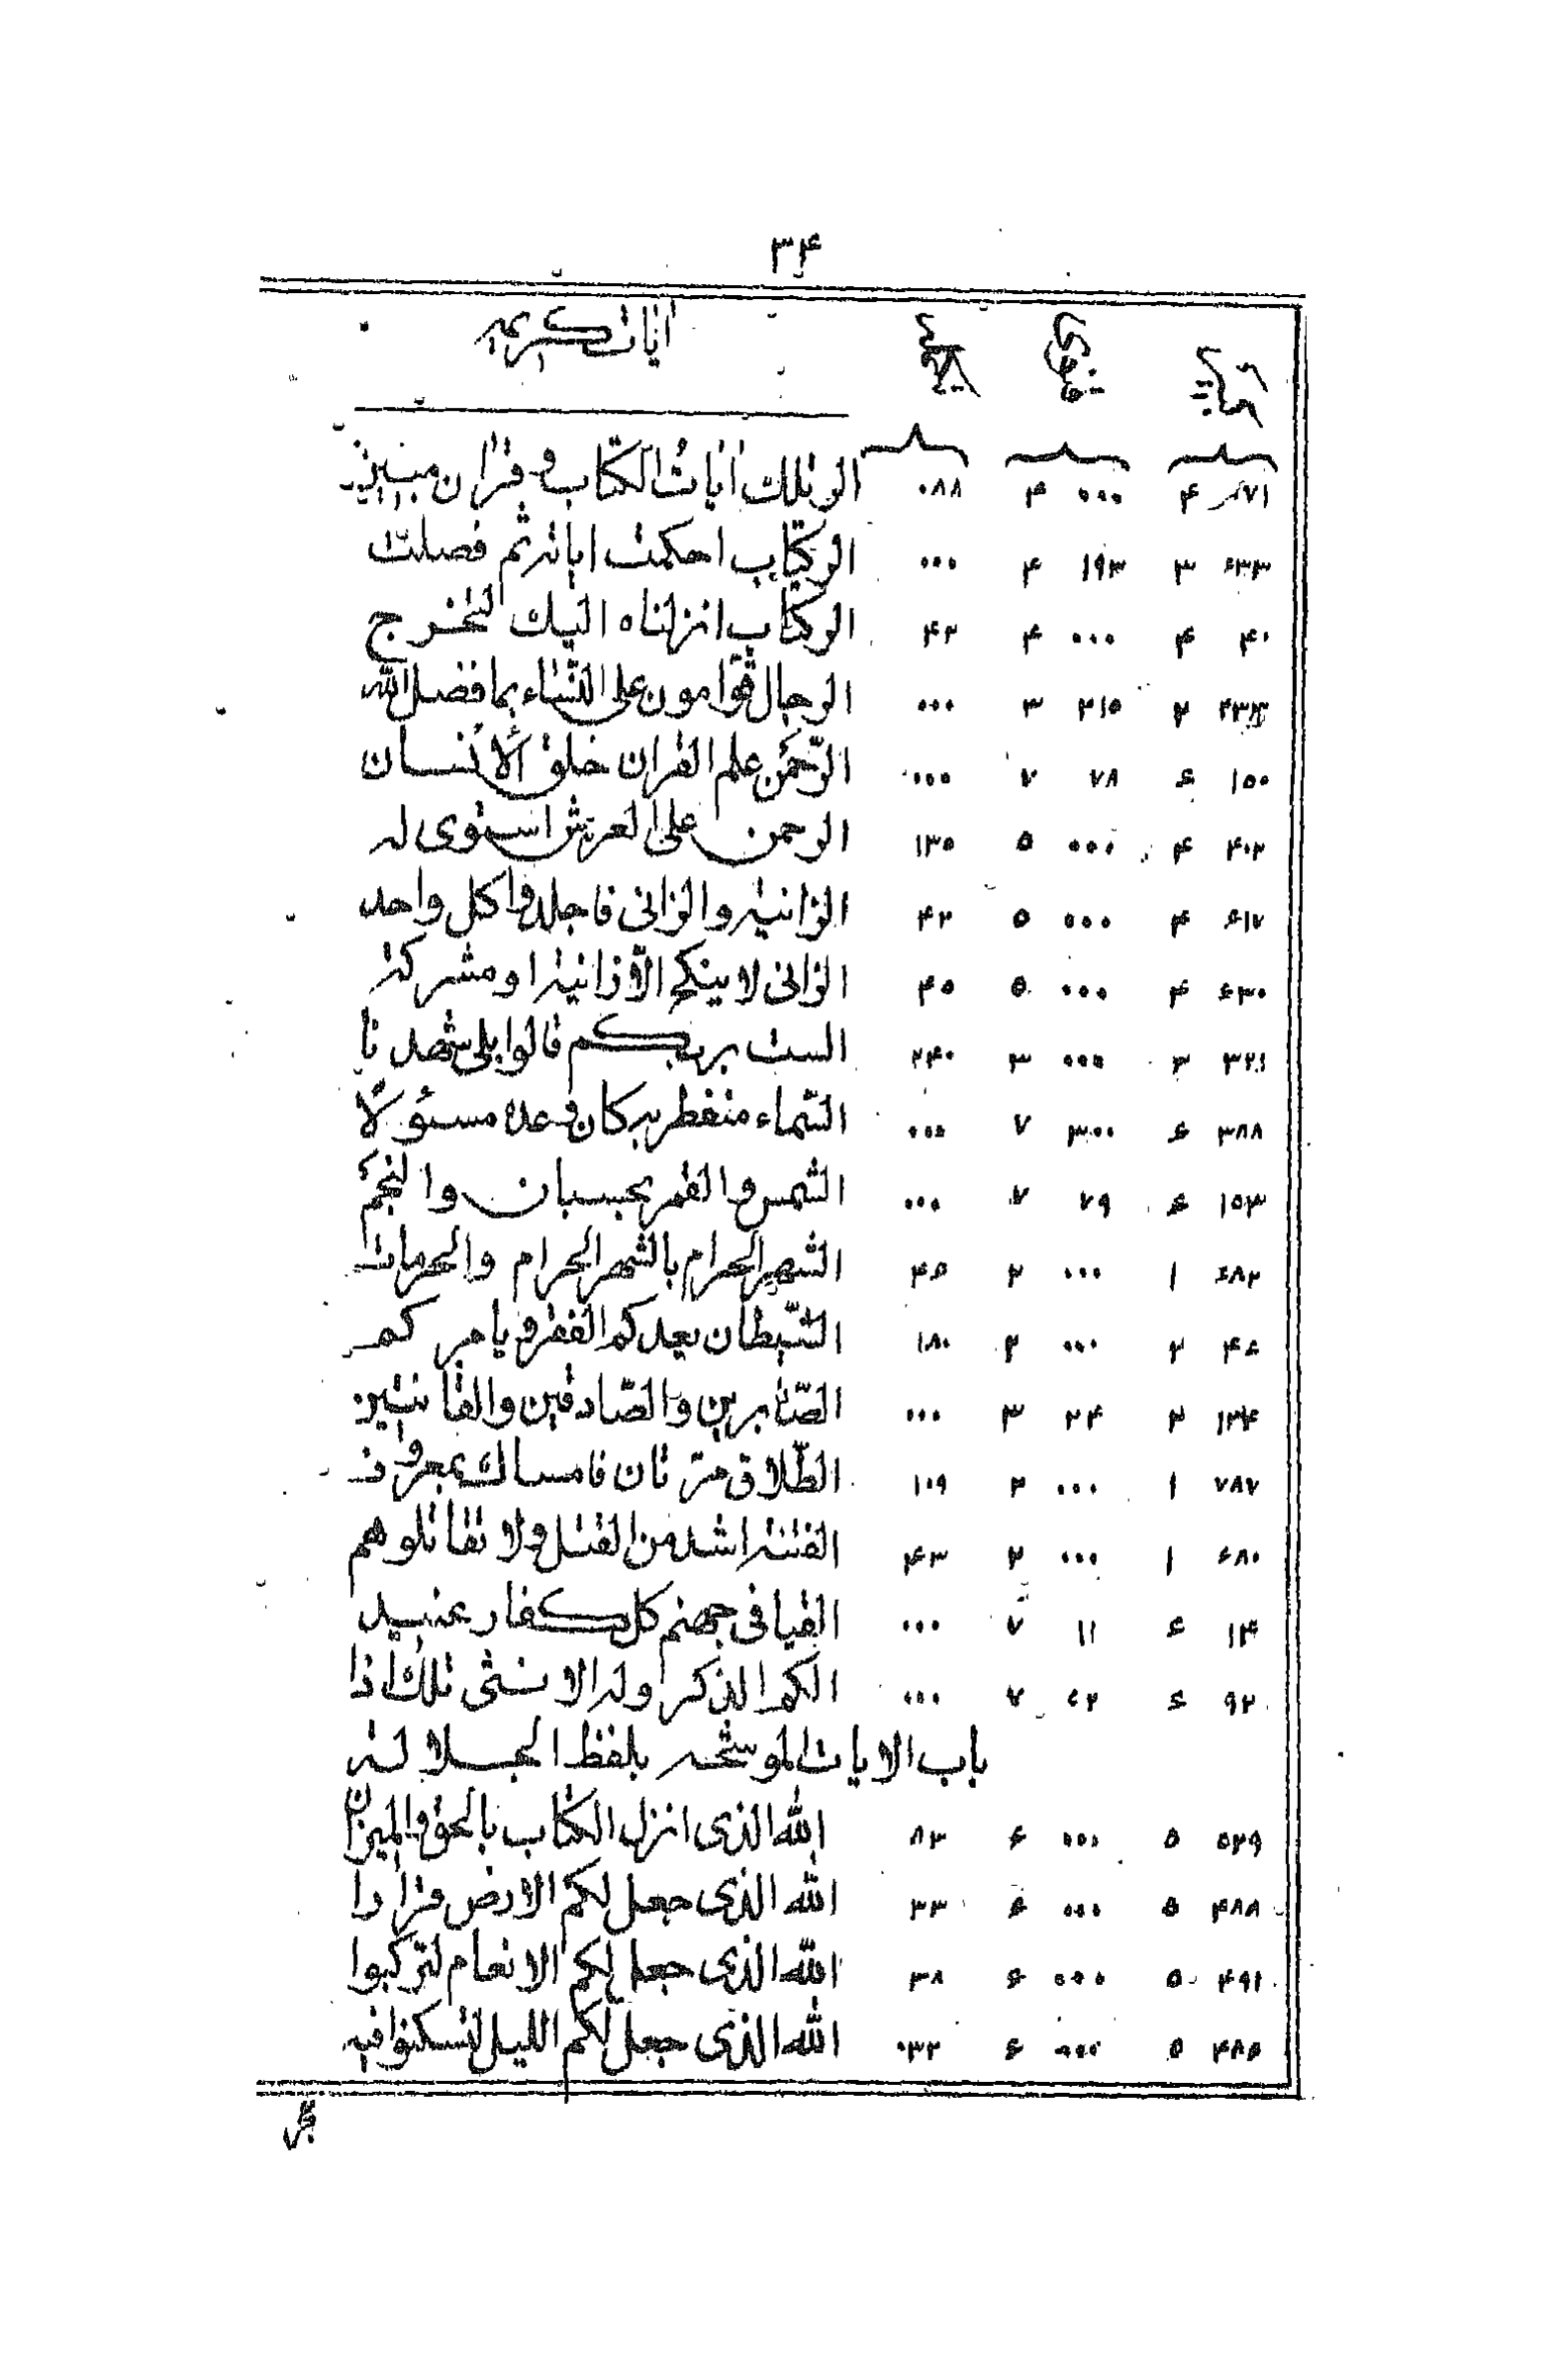 ۳۴
ایات کریمه
۸۷۱ ۴ ۰۰۰ ۴ ۰۸۸ الر تلک ایات الکتاب و قران مبین
۶۳۳ ۳ ۱۹۳ ۴ ۰۰۰ الر کتاب احکمت ایاته ثم فصلت
۴۰ ۴ ۰۰۰ ۴ ۴۲ الر کتاب انزلناه الیک لتخرج
۲ ۲۱۵ ۳ ۰۰۰ الرجال قوّامون علی النّساء بما فضل الله
۱۵۰ ۶ ۷۸ ۷ ۰۰۰ الرّحمن علم القران خلق الانسان
۴۰۲ ۴ ۰۰۰ ۵ ۱۳۵ الرحمن علی العرش استوی له
۶۱۷ ۴ ۰۰۰ ۵ ۴۲ الزانیه والزانی فاجلدوا کل واحد
۶۳۰ ۴ ۰۰۰ ۵ ۴۵ الزانی لا ینکح الّا زانیة او مشرکة
۳۲۱ ۳ ۰۰۰ ۳ ۲۴۰ الست بربکم قالوا بلی شهدنا
۳۸۸ ۶ ۳۰۰ ۷ ۰۰۰ السّماء منفطر به کان وعده مسئولاً
۱۵۳ ۶ ۷۹ ۷ ۰۰۰ الشمس والقمر بحسبان والنجم
۶۸۲ ۱ ۰۰۰ ۲ ۴۵ الشهر الحرام بالشهر الحرام والحرمات
۴۶ ۲ ۰۰۰ ۲ ۱۸۰ الشّیطان یعدکم الفقر و یامرکم
۱۳۴ ۲ ۲۴ ۳ ۰۰۰ الصّابرین والصّادقین والقانتین
۷۸۷ ۱ ۰۰۰ ۲ ۱۰۹ الطّلاق مرّتان فامساک بمعروف
۶۸۰ ۱ ۰۰۰ ۲ ۴۳ الفتنة اشد من القتل ولا تقاتلوهم
۱۴ ۶ ۱۱ ۷ ۰۰۰ القیا فی جهنم کل کفار عنید
۹۲ ۶ ۶۲ ۷ ۰۰۰ الکم الذکر وله الانثی تلک اذا
باب الایات الموشحه بلفظ الجلالة
۵۲۹ ۵ ۰۰۰ ۶ ۸۳ الله الذی انزل الکتاب بالحق والمیزان
۴۸۸ ۵ ۰۰۰ ۶ ۳۳ الله الذی جعل لکم الارض قرارا
۴۹۱ ۵ ۰۰۰ ۶ ۳۸ الله الذی جعل لکم الانعام لترکبوا
۴۸۵ ۵ ۰۰۰ ۶ ۰۳۲ الله الذی جعل لکم اللیل لتسکنوا فیه